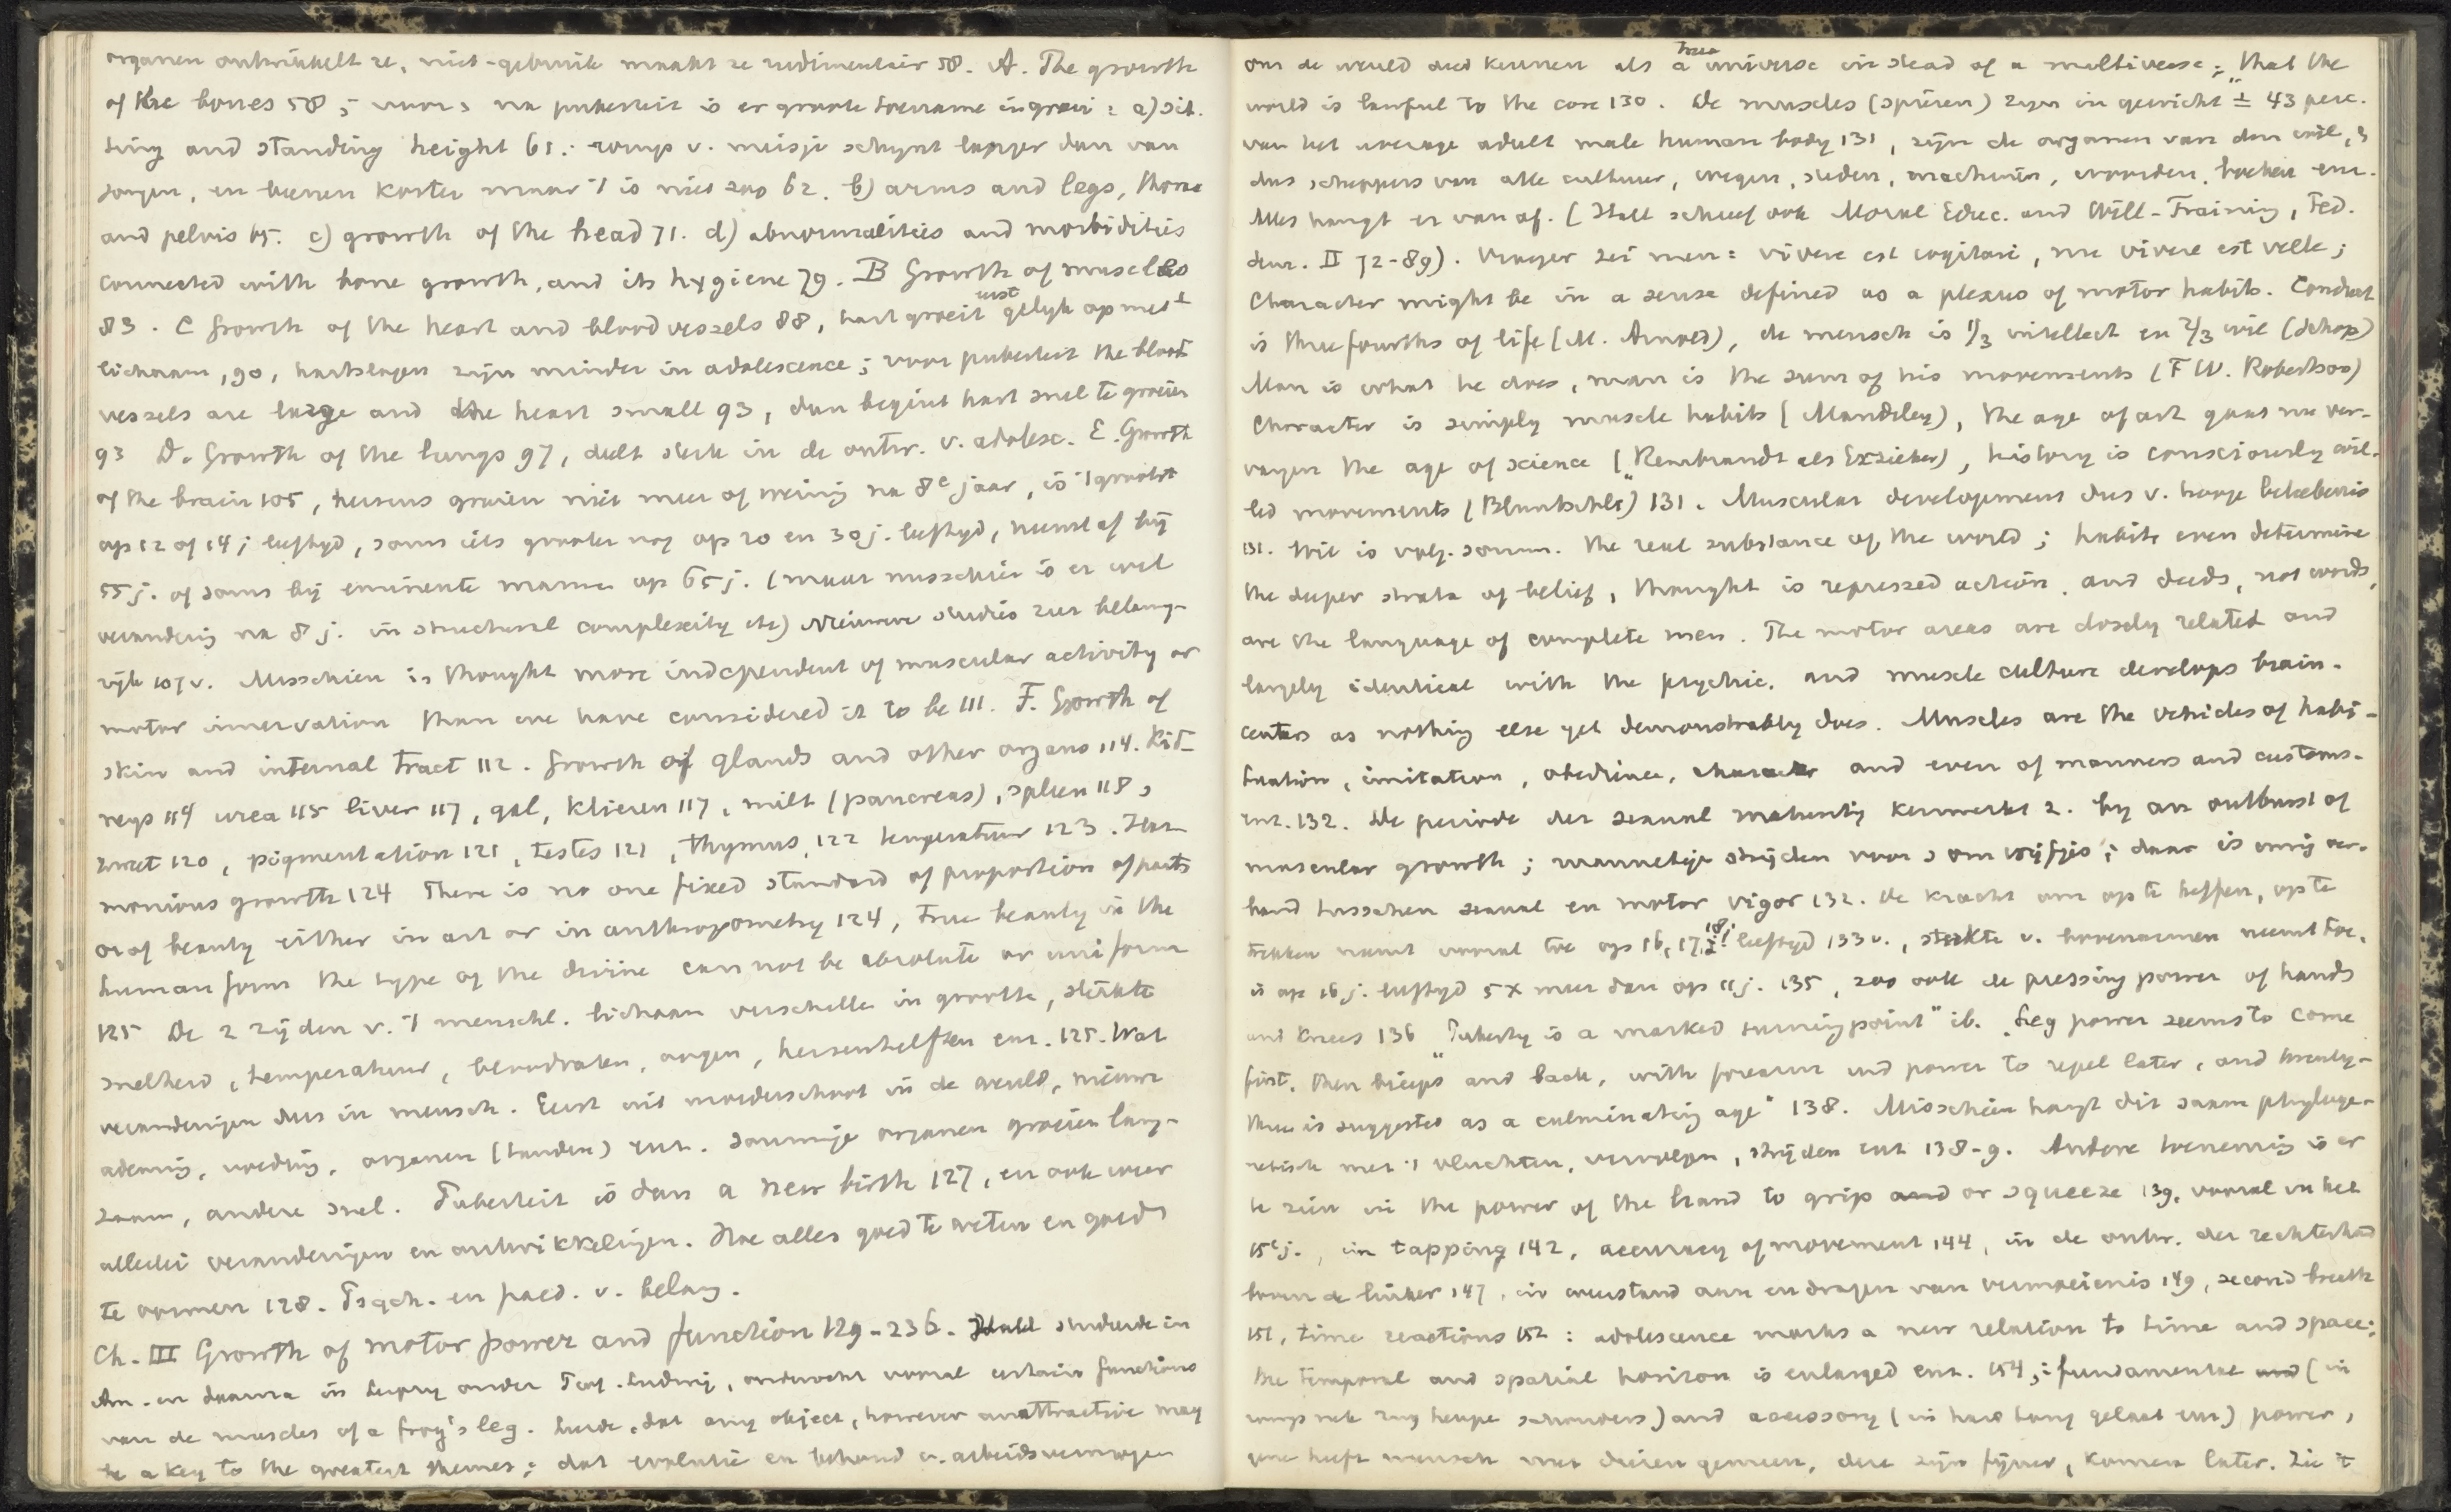 organen ontwikkelt ze, niet-gebruik maakt ze rudimentair 58. A. The growth
of the bones 58; voor en na puberteit is er groote toename in groei: a) sit-
ting and standing height 61.: romp v. meisje schijnt langer dan van
jongen, en beenen korter maar 't is niet zoo 62. b) arms and legs, thorax
and pelvis 65. c) growth of the head 71. d) abnormalities and morbidities
connected with bone growth, and its hygiene 79. B Growth of muscles
83. C Growth of the heart and bloodvessels 88, hart groeit juist gelijk op met 't
lichaam, 90, hartslagen zijn minder in adolescence; voor puberteit the blood
vessels are large and the heart small 93, dan begint hart snel te groeien
93 D. Growth of the lungs 97, delt sterk in de ontw. v. adolesc. E. Growth
of the brain 105, hersens groeien niet meer of weinig na 8e jaar, is 't grootst
op 12 of 14 j. leeftijd, soms iets grooter nog op 20 en 30 j. leeftijd, neemt af bij
55 j. of soms bij eminente mannen op 65 j. (maar misschien is er wel
verandering na 8 j. in structural complexity etc) Nieuwere studies zeer belang-
rijk 107v. Misschien is thought more independent of muscular activity or
motor innervation than we have considered it to be 111. F. Growth of
skin and internal tract 112. Growth of glands and other organs 114. Kid-
neys 114 urea 115 liver 117, gal, klieren 117, milt (pancreas), spleen 118,
zweet 120, pigmentation 121, testes 121, thymus, 122 temperatuur 123. Har-
monious growth 124 There is no one fixed standard of proportion of parts
or of beauty either in art or in anthropometry 124, true beauty in the
human form the type of the divine can not be absolute or uniform
125 De 2 zijden v. 't menschl. lichaam verschillen in grootte, sterkte
snelheid, temperatuur, bloedvaten, oogen, hersenhelften enz. 125. Wat
veranderingen dus in mensch. Eerst uit moederschoot in de wereld, nieuwe
ademing, voeding, organen (tanden) enz. Sommige organen groeien lang-
zaam, andere snel. Puberteit is dan a new birth 127, en ook weer
allerlei veranderingen en ontwikkelingen. Hoe alles goed te weten en goed
te vormen 128. Psych. en paed. v. belang.
Ch. III Growth of motor power and function 129-236. Hall studeerde in
Am. en daarna in Leipzig onder Prof. Ludwig, onderzocht vooral certain functions
van de muscles of a frog's leg. Leerde, dat any object, however unattractive may
be a key to the greatest themes; dat evolutie en behoud v. arbeidsvermogen
ons de wereld doet kennen als a true universe in stead of a multiverse; "that the
world is lawful to the core 130. De muscles (spieren) zijn in gewicht ± 43 perc.
van het average adult male human body 131, zijn de organen van den wil, en
dus scheppers van alle cultuur, wegen, steden, machines, woorden, boeken enz.
Alles hangt er van af. (Hall schreef ook Moral Educ. and Will-Training, Ped.
Sem. II 72-89). Vroeger zei men: vivere est cogitare, nu vivere est velle;
Character might be in a sense defined as a plexus of motor habits. Conduct
is three fourths of life (M. Arnold), de mensch is 1/3 intellect en 2/3 wil (Schop)
Man is what he does, man is the sum of his movements (F W. Robertson)
Character is simply muscle habits (Maudsley), the age of art gaat nu ver-
vangen the age of science ("Rembrandt als Erzieher), history is consciously wil-
led movements (Bluntschli") 131. Muscular development dus v. hooge beteekenis
131. Wil is volg. somm. the real substance of the world; habits even determine
the deeper strata of belief, thought is repressed action, and deeds, not words,
are the language of complete men. The motor areas are closely related and
largely identical with the psychic, and muscle culture develops brain-
centers as nothing else yet demonstrably does. Muscles are the vehicles of habi-
tuation, imitation, obedience, character and even of manners and customs.
enz. 132. De periode der sexual maturity kenmerkt z. by an outburst of
muscular growth; mannetjes strijden voor en om wijfjes; daar is innig ver-
band tusschen sexual en motor vigor 132. De kracht om op te heffen, op te
trekken neemt vooral toe op 16, 17, 18 j. leeftijd 133v., sterkte v. bovenarmen neemt toe,
is op 16 j. leeftijd 5x meer dan op 11 j. 135, zoo ook de pressing power of hands
and knees 136 "Puberty is a marked turningpoint" ib. "Leg power seems to come
first, then biceps and back, with forearm and power to repel later, and twenty-
three is suggested as a culminating age" 138. Misschien hangt dit saam phyloge-
netisch met 't vluchten, vervolgen, strijden enz 138-9. Andere toeneming is er
te zien in the power of the hand to grip and or squeeze 139, vooral in het
15e j., in tapping 142, accuracy of movement 144, in de ontw. der rechterhand
boven de linker 147, in weerstand aan en dragen van vermoeienis 149, second breath
151, time reactions 152: adolescence marks a new relation to time and space;
the temporal and spatial horizon is enlarged enz. 154,; fundamental and (in
romp nek rug heupe schouders) and accessory (in hand tong gelaat enz) power,
gene heeft mensch met dieren gemeen, deze zijn fijner, komen later. Zie 't